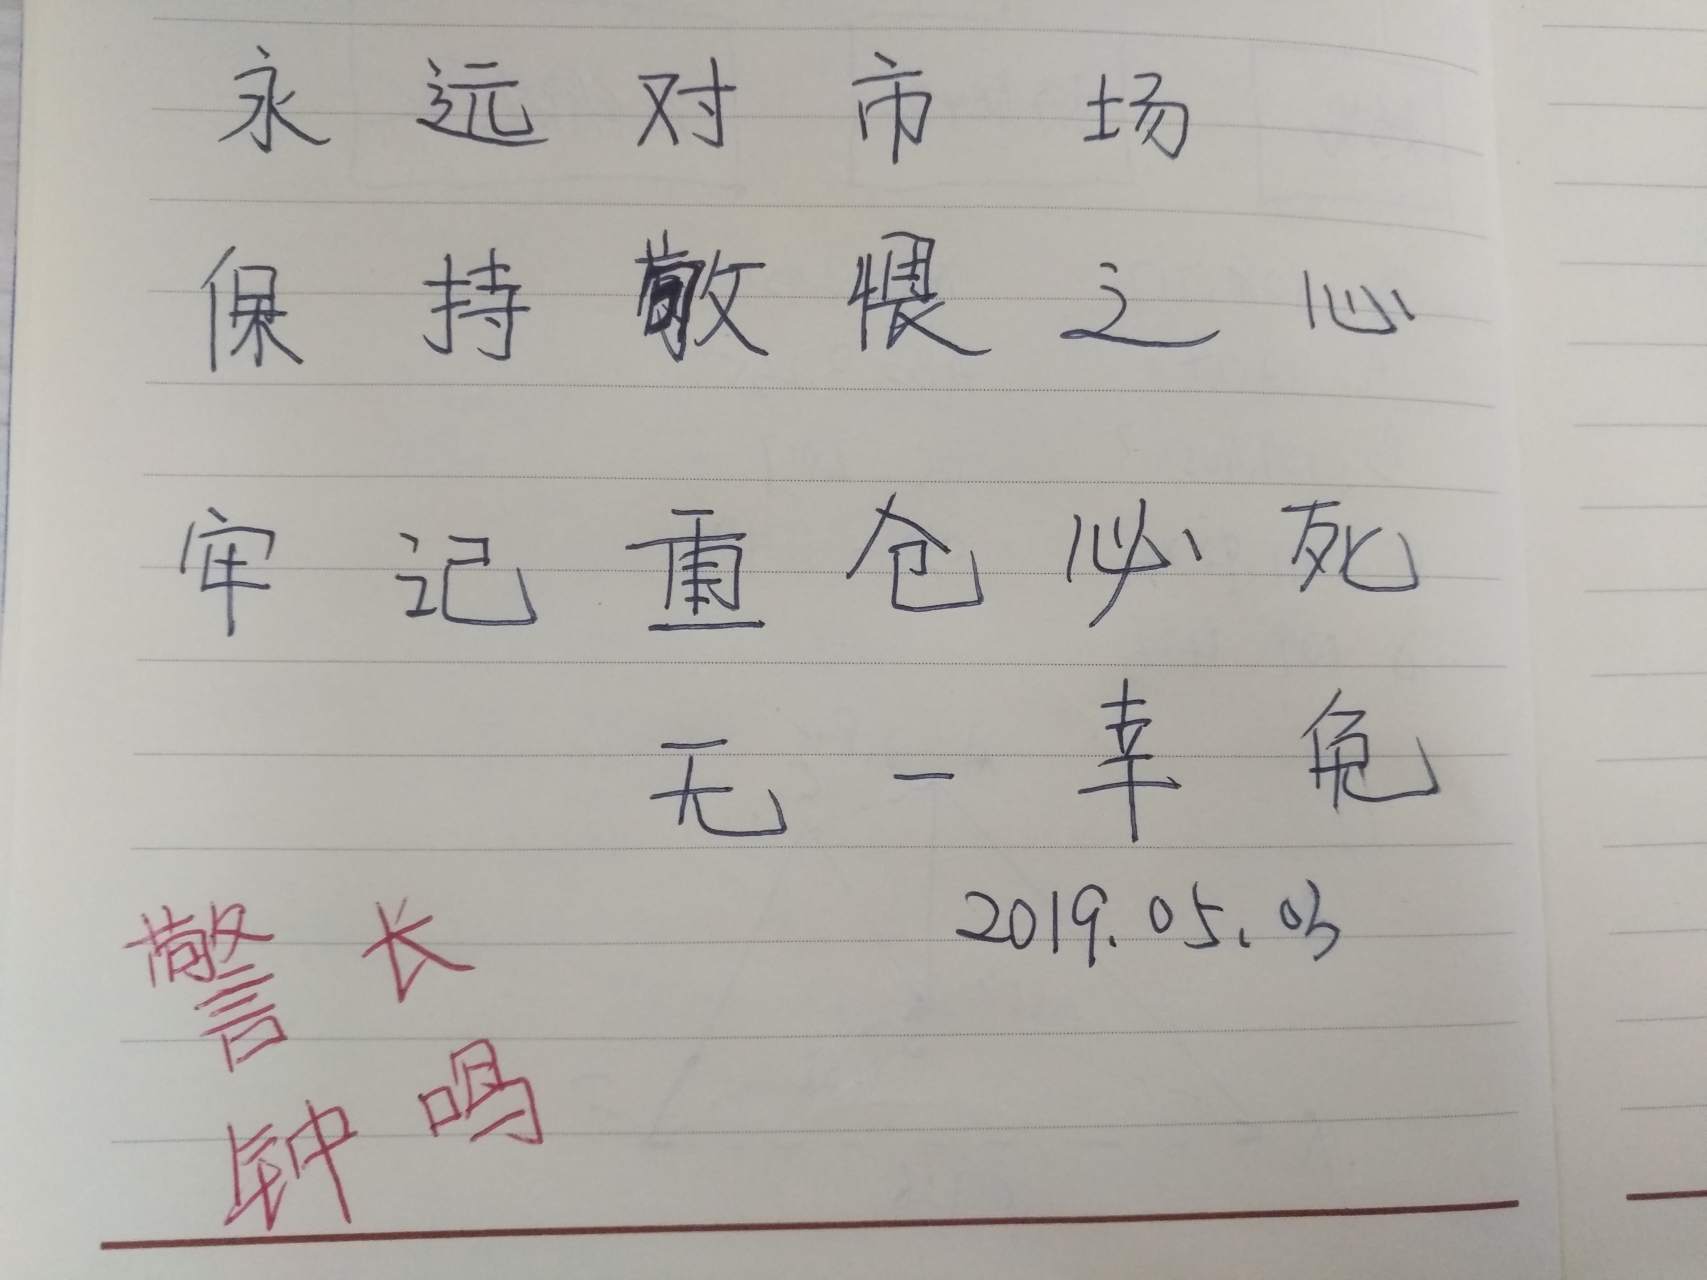 永远对市场
保持敬畏之心
牢记重仓必死
无一幸免
2019.05.03
警长
钟鸣